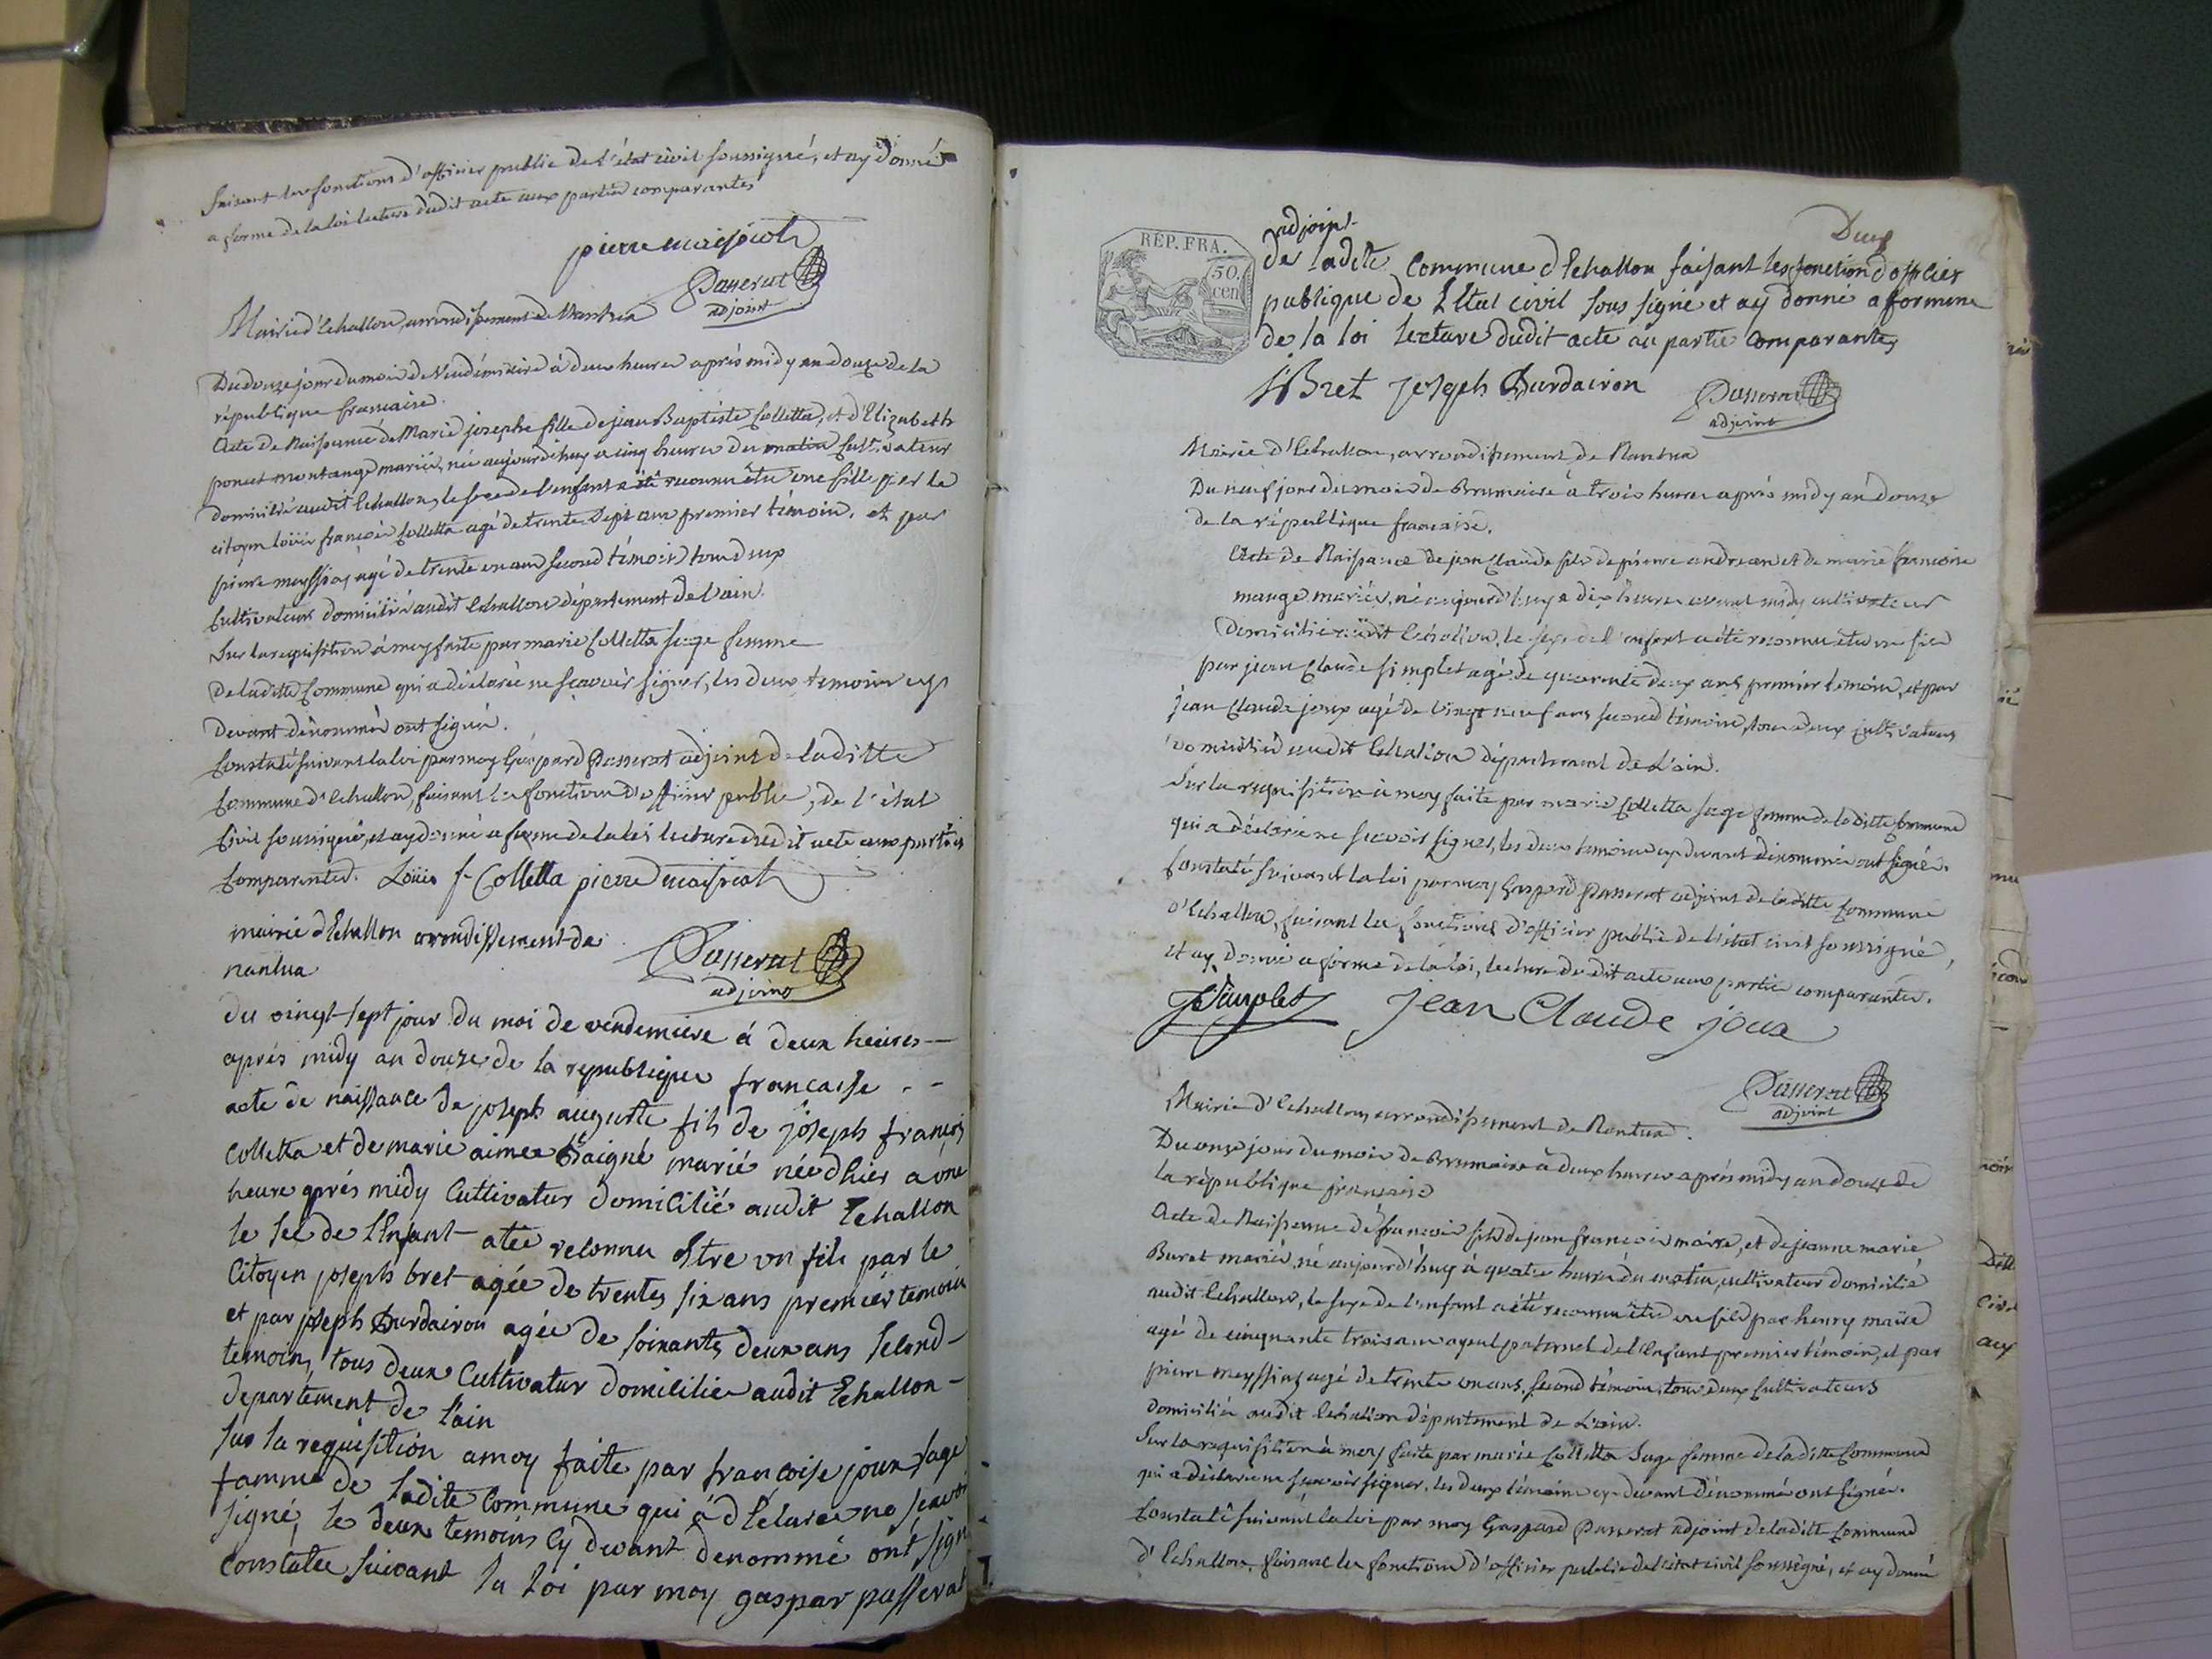 faisant les fonctions d'officier public de l'état civil soussigné, et ay donné
a forme de la loi lecture dudit acte aux parties comparantes
pierre maissiat
Passerat
adjoint
Mairie d'Echallon, arrondissement de Nantua
Du douze jour du mois de Vendémiaire à deux heures après midy an douze de la
république francaise.
Acte de Naissance de Marie josephe fille de jean Baptiste Colletta, et d'Elizabeth
poncet montange mariés, née aujourd'huy a cinq heures du matin Cultivateur
domicilié audit Echallon, le sexe de l'enfant a été reconnu être une fille par le
citoyen loüis françois Colletta agé de trente sept ans premier témoin, et par
pierre meyssiaz agé de trente un ans second témoin tous deux
Cultivateurs domiciliés audit Echallon département de l'ain.
Sur la requisition à moy faite par marie Colletta sage femme
de laditte Commune qui a déclarée ne scavoir signer, les deux temoins cy
devant dénommés ont signés.
Constaté suivant la loi par moy Gaspard Passerat adjoint de laditte
Commune d'Echallon, faisant les fonctions d'officier public, de l'état
Civil soussigné, et ay donné a forme de la loi lecture dudit acte aux parties
Comparantes. Loüis f. Colletta pierre maissiat
mairie d'Echallon arondissement de
nantua
Passerat
adjoint
du vingt-sept jour du moi de vendemiere á deux heures
aprés midy an douze de la republique francaise
acte de naissance de joseph auguste fils de joseph françois
Colletta et de marie aimee Baigné marié née d'hier a une
heure aprés midy Cultivatur domicilié audit Echallon
le sex de l'Enfant atée reconnu Estre un fils par le
Citoyen joseph bret agée de trentes six ans premier temoin
et par joseph Burdairon agée de soixantes deux ans second
temoins, tous deux Cultivatur domicilie audit Echallon
departément de l'ain
sur la requisition amoy faite par françoise joux sage
famme de ladite Commune qui á d'Eclaree ne scavoir
signé, le deux temoins Cy devant denommé ont signé
Constatee suivant la loi par moy gaspar passerat
Deux
adjoint
RÉP. FRA.
50.
cen
de ladite Commune d'Echallon faisant les fonction d'officier
publique de l'Etat civil sous signé et ay donné a formme
de la loi lecture dudit acte au partie Comparantes
J Bret joseph Burdairon
Passerat
adjoint
Mairie d'Echallon, arrondissement de Nantua
Du neuf jour du mois de Brumaire à trois heures après midy an douze
de la république francaise.
Acte de Naissance de jean Claude fils de pierre andrean et de marie francoise
mange mariés, né aujourd'huy a dix heures avant midy cultivateur
domicilié audit Echallon, le sexe de l'enfant a été reconnu être un fils
par jean Claude simplet agé de quarente deux ans premier témoin, et par
jean Claude joux agé de vingt neuf ans second témoin, tous deux cultivateurs
domiciliés audit Echallon département de L'ain.
Sur la requisition à moy faite par marie Colletta sage femme de laditte Commune
qui a déclarée ne scavoir signer, les deux temoins cy devant dénommés ont signés.
Constaté suivant la loi par moy Gaspard Passerat adjoint de laditte Commune
d'Echallon, faisant les fonctions d'officier public de l'état civil soussigné,
et ay donné a forme de la loi, lecture dudit acte aux parties comparantes.
Simplet Jean Claude joux
Passerat
adjoint
Mairie d'Echallon, arrondissement de Nantua.
Du onze jour du mois de Brumaire à deux heures après midy an douze de
la république française
Acte de Naissance de françois fils de jean francois maire, et de jeanne marie
Buret mariés, né aujourd'huy à quatre heures du matin, cultivateur domicilié
audit Echallon, le sexe de l'enfant a été reconnu être un fils par henry maire
agé de cinquante trois ans ayeul paternel de l'Enfant premier témoin, et par
pierre meyssiaz agé de trente un ans, second témoin, tous deux Cultivateurs
domiciliés audit Echallon département de L'ain.
Sur la requisition à moy faite par marie Colletta Sage femme de laditte Commune
qui a déclaree ne scavoir signer, les deux témoins cy devant dénommés ont signés.
Constaté suivant la loi par moy Gaspard Passerat adjoint de laditte Commune
d'Echallon, faisant les fonctions d'officier public de l'état civil soussigné, et ay donné